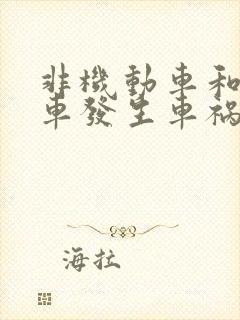 非機動車和
車發生車禍
海拉